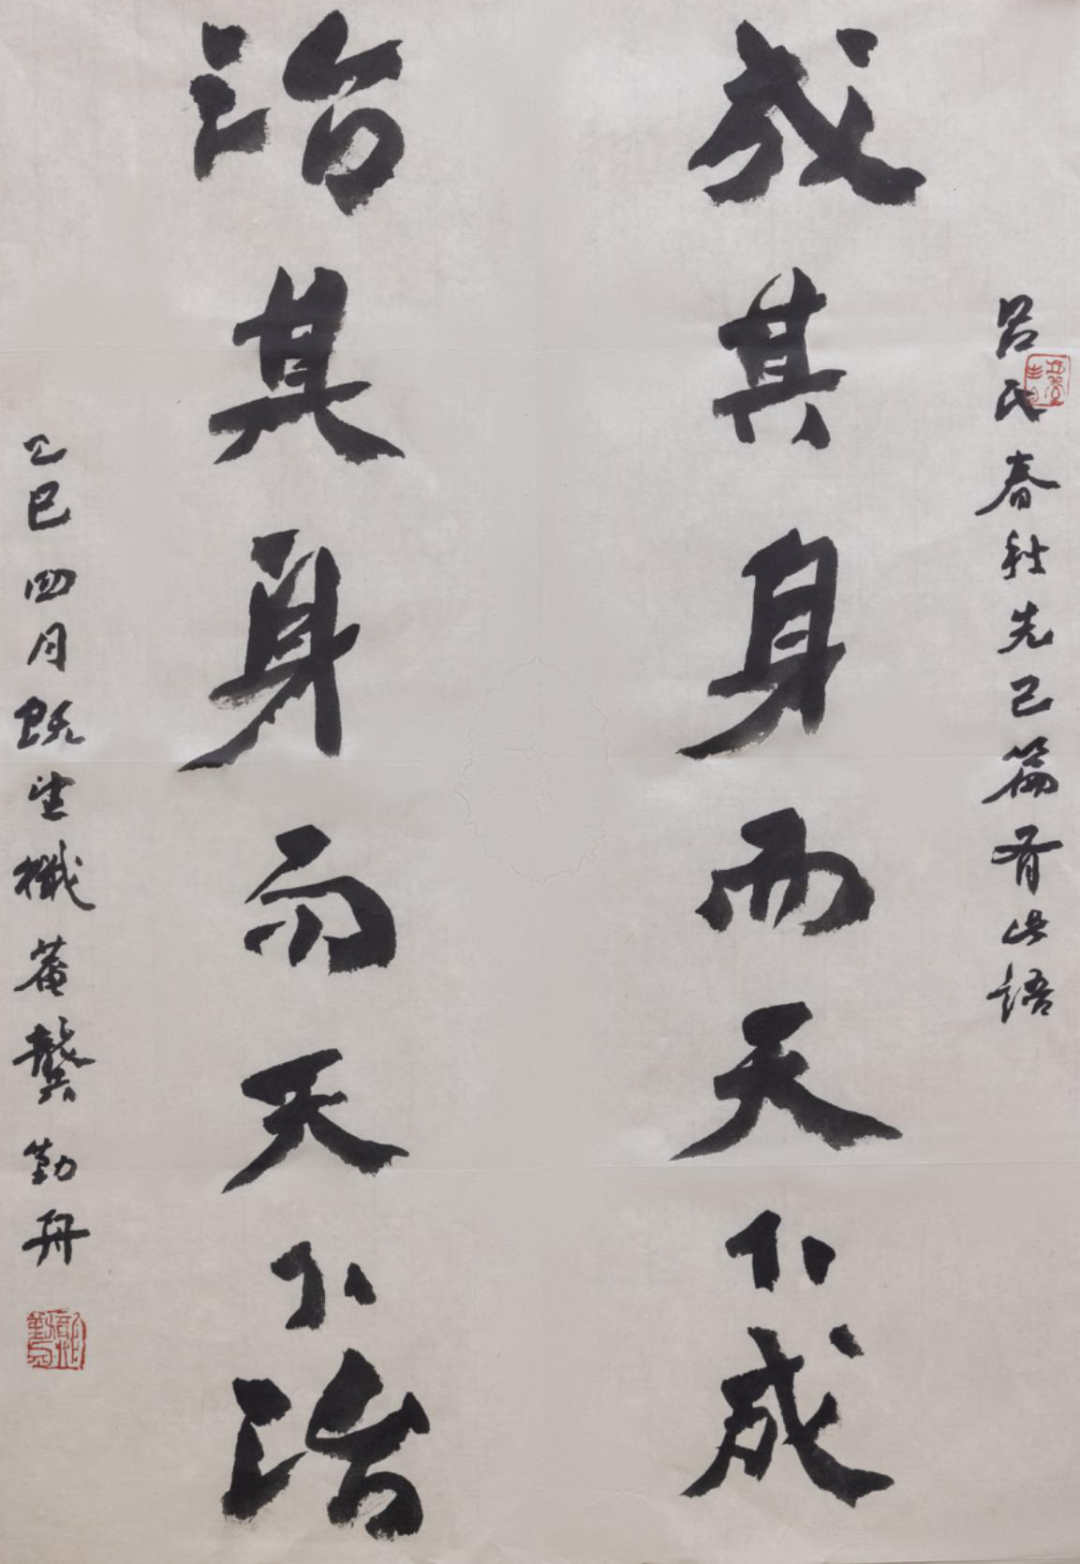 吕氏春秋先己篇有此語
成其身而天下成
治其身而天下治
乙巳四月既望檵菴龔勤舟